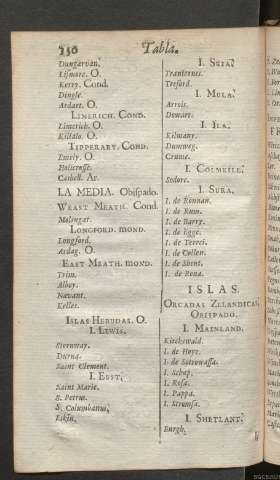 150 Tabla.
Dungaruan.
Lismore. O.
Kerry. Cond.
Dingle.
Ardart. O.
LIMERICH. COND.
Limerich. O.
Killalo. O.
TIPPERARY. COND.
Emely. O.
Holicrosse.
Cashell. Ar.
LA MEDIA. Obispado.
WEAST MEATH. Cond.
Molingar.
LONGFORD. mond.
Longford.
Ardag. O.
EAST MEATH. mond.
Trim.
Alboy.
Navant.
Kelles.
ISLAS HEBUDAS. O.
I. LEWIS.
Steroway.
Durna.
Saint Clement.
I. EUST.
Saint Marie.
B. Petrus.
S. Columbanus.
Eikin.
I. SKIA.
Tranternes.
Tresord.
I. MULA.
Arrois.
Dowart.
I. ILA.
Kilmany.
Dunoweg.
Crume.
I. COLMKILE.
Sodore.
I. SURA.
I. de Ronnan.
I. de Rum.
I. de Barry.
I. de Egge.
I. de Terrei.
I. de Collen.
I. de Shent.
I. de Rona.
ISLAS.
ORCADAS ZELANDICAS.
OBISPADO.
I. MAINLAND.
Kirckwald.
I. de Hoye.
I. de Sotrowassa.
I. Schap.
I. Rosa.
I. Pappa.
I. Stromsa.
I. SHETLANT.
Burgh.